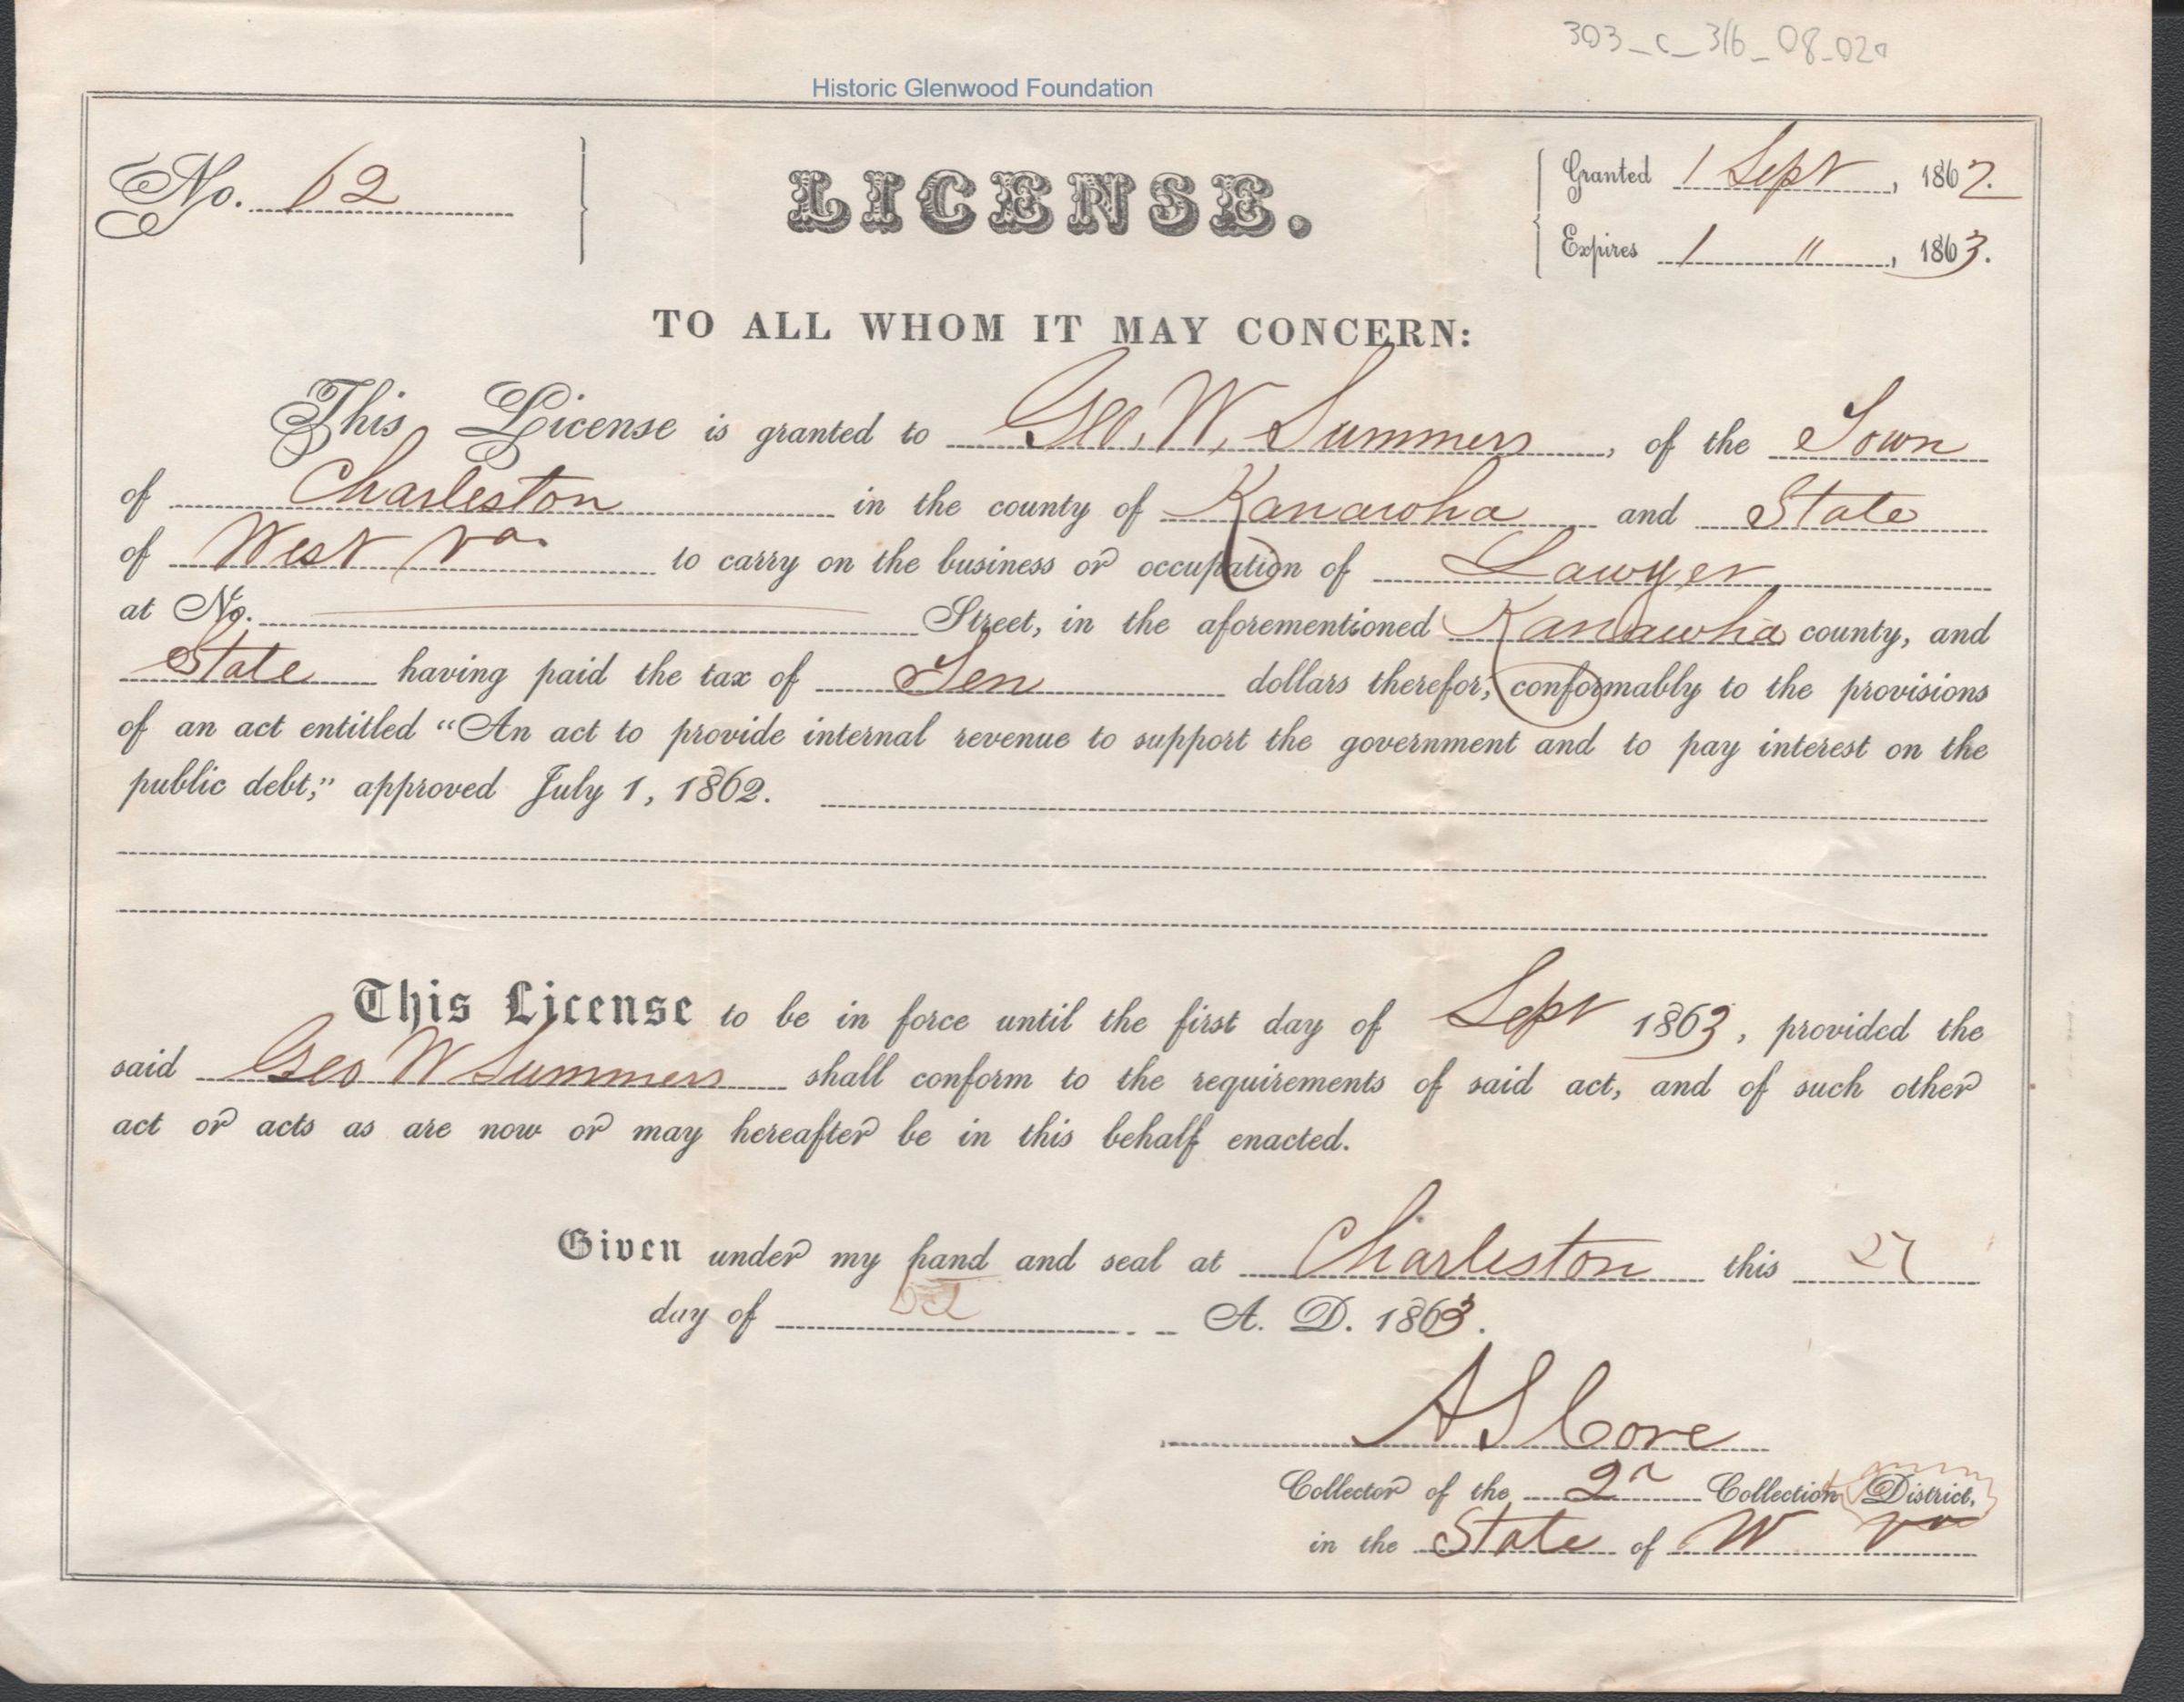 303_C_316_08_02a
Historic Glenwood Foundation
No. 62
LICENSE.
Granted 1 Sept, 1862.
Expires 1 ", 1863.
TO ALL WHOM IT MAY CONCERN:
This License is granted to Geo. W. Summers, of the Town
of Charleston in the county of Kanawha and State
of West Va. to carry on the business or occupation of Lawyer
at No. Street, in the aforementioned Kanawha county, and
State having paid the tax of Ten dollars therefor, conformably to the provisions
of an act entitled "An act to provide internal revenue to support the government and to pay interest on the
public debt," approved July 1, 1862.
This License to be in force until the first day of Sept 1863, provided the
said Geo W Summers shall conform to the requirements of said act, and of such other
act or acts as are now or may hereafter be in this behalf enacted.
Given under my hand and seal at Charleston this 27
day of A. D. 1863.
A S Core
Collector of the 2d Collection District,
in the State of W Va